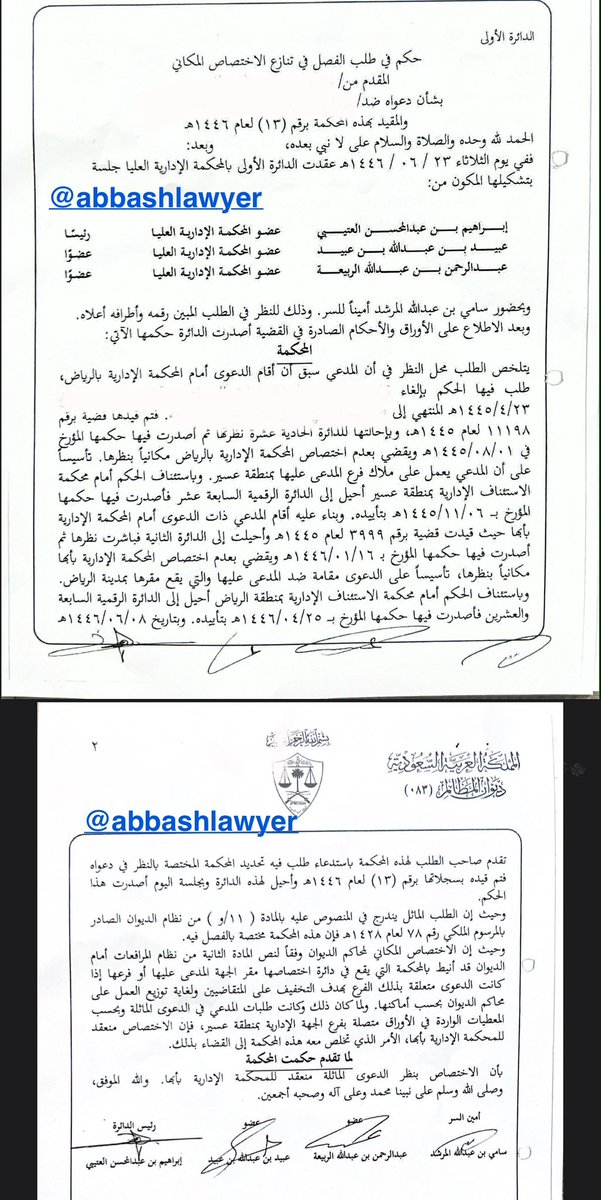 الدائرة الأولى
حكم في طلب الفصل في تنازع الاختصاص المكاني
المقدم من/
بشأن دعواه ضد/
والمقيد بهذه المحكمة برقم (١٣) لعام ١٤٤٦هـ
الحمد لله وحده والصلاة والسلام على لا نبي بعده، وبعد:
ففي يوم الثلاثاء ٢٣ / ٠٦ / ١٤٤٦هـ عقدت الدائرة الأولى بالمحكمة الإدارية العليا جلسة
بتشكيلها المكون من:
@abbashlawyer
إبراهيم بن عبدالمحسن العتيبي عضو المحكمة الإدارية العليا رئيسًا
عبيد بن عبدالله بن عبيد عضو المحكمة الإدارية العليا عضوًا
عبدالرحمن بن عبدالله الربيعة عضو المحكمة الإدارية العليا عضوًا
وبحضور سامي بن عبدالله المرشد أميناً للسر. وذلك للنظر في الطلب المبين رقمه وأطرافه أعلاه.
وبعد الاطلاع على الأوراق والأحكام الصادرة في القضية أصدرت الدائرة حكمها الآتي:
المحكمة
يتلخص الطلب محل النظر في أن المدعي سبق أن أقام الدعوى أمام المحكمة الإدارية بالرياض،
طلب فيها الحكم بإلغاء
١٤٤٥/٤/٢٣هـ المنتهي إلى . فتم قيدها قضية برقم
١١١٩٨ لعام ١٤٤٥هـ، وبإحالتها للدائرة الحادية عشرة نظرتها ثم أصدرت فيها حكمها المؤرخ
في ١٤٤٥/٠٨/٠١هـ ويقضي بعدم اختصاص المحكمة الإدارية بالرياض مكانياً بنظرها. تأسيساً
على أن المدعي يعمل على ملاك فرع المدعى عليها بمنطقة عسير. وباستئناف الحكم أمام محكمة
الاستئناف الإدارية بمنطقة عسير أحيل إلى الدائرة الرقمية السابعة عشر فأصدرت فيها حكمها
المؤرخ بـ ١٤٤٥/١١/٠٦هـ بتأييده. وبناء عليه أقام المدعي ذات الدعوى أمام المحكمة الإدارية
بأبها حيث قيدت قضية برقم ٣٩٩٩ لعام ١٤٤٥هـ وأحيلت إلى الدائرة الثانية فباشرت نظرها ثم
أصدرت فيها حكمها المؤرخ بـ ١٤٤٦/٠١/١٦هـ ويقضي بعدم اختصاص المحكمة الإدارية بأبها
مكانياً بنظرها، تأسيساً على الدعوى مقامة ضد المدعى عليها والتي يقع مقرها بمدينة الرياض.
وباستئناف الحكم أمام محكمة الاستئناف الإدارية بمنطقة الرياض أحيل إلى الدائرة الرقمية السابعة
والعشرين فأصدرت فيها حكمها المؤرخ بـ ١٤٤٦/٠٤/٢٥هـ بتأييده. وبتاريخ ١٤٤٦/٠٦/٠٨هـ
المملكة العربية السعودية
ديوان المظالم
(٠٨٣)
٢
@abbashlawyer
تقدم صاحب الطلب لهذه المحكمة باستدعاء طلب فيه تحديد المحكمة المختصة بالنظر في دعواه
فتم قيده بسجلاتها برقم (١٣) لعام ١٤٤٦هـ وأحيل لهذه الدائرة وبجلسة اليوم أصدرت هذا
الحكم.
وحيث إن الطلب الماثل يندرج في المنصوص عليه بالمادة (١١/و) من نظام الديوان الصادر
بالمرسوم الملكي رقم ٧٨ لعام ١٤٢٨هـ فإن هذه المحكمة مختصة بالفصل فيه.
وحيث إن الاختصاص المكاني لمحاكم الديوان وفقاً لنص المادة الثانية من نظام المرافعات أمام
الديوان قد أنيط بالمحكمة التي يقع في دائرة اختصاصها مقر الجهة المدعى عليها أو فرعها إذا
كانت الدعوى متعلقة بذلك الفرع بهدف التخفيف على المتقاضيين ولغاية توزيع العمل على
محاكم الديوان بحسب أماكنها. ولما كان ذلك وكانت طلبات المدعي في الدعوى الماثلة وبحسب
المعطيات الواردة في الأوراق متصلة بفرع الجهة الإدارية بمنطقة عسير، فإن الاختصاص منعقد
للمحكمة الإدارية بأبها، الأمر الذي تخلص معه هذه المحكمة إلى القضاء بذلك.
لما تقدم حكمت المحكمة
بأن الاختصاص بنظر الدعوى الماثلة منعقد للمحكمة الإدارية بأبها. والله الموفق،
وصلى الله وسلم على نبينا محمد وعلى آله وصحبه أجمعين.
أمين السر عضو عضو رئيس الدائرة
سامي بن عبدالله المرشد عبدالرحمن بن عبدالله الربيعة عبيد بن عبدالله بن عبيد إبراهيم بن عبدالمحسن العتيبي